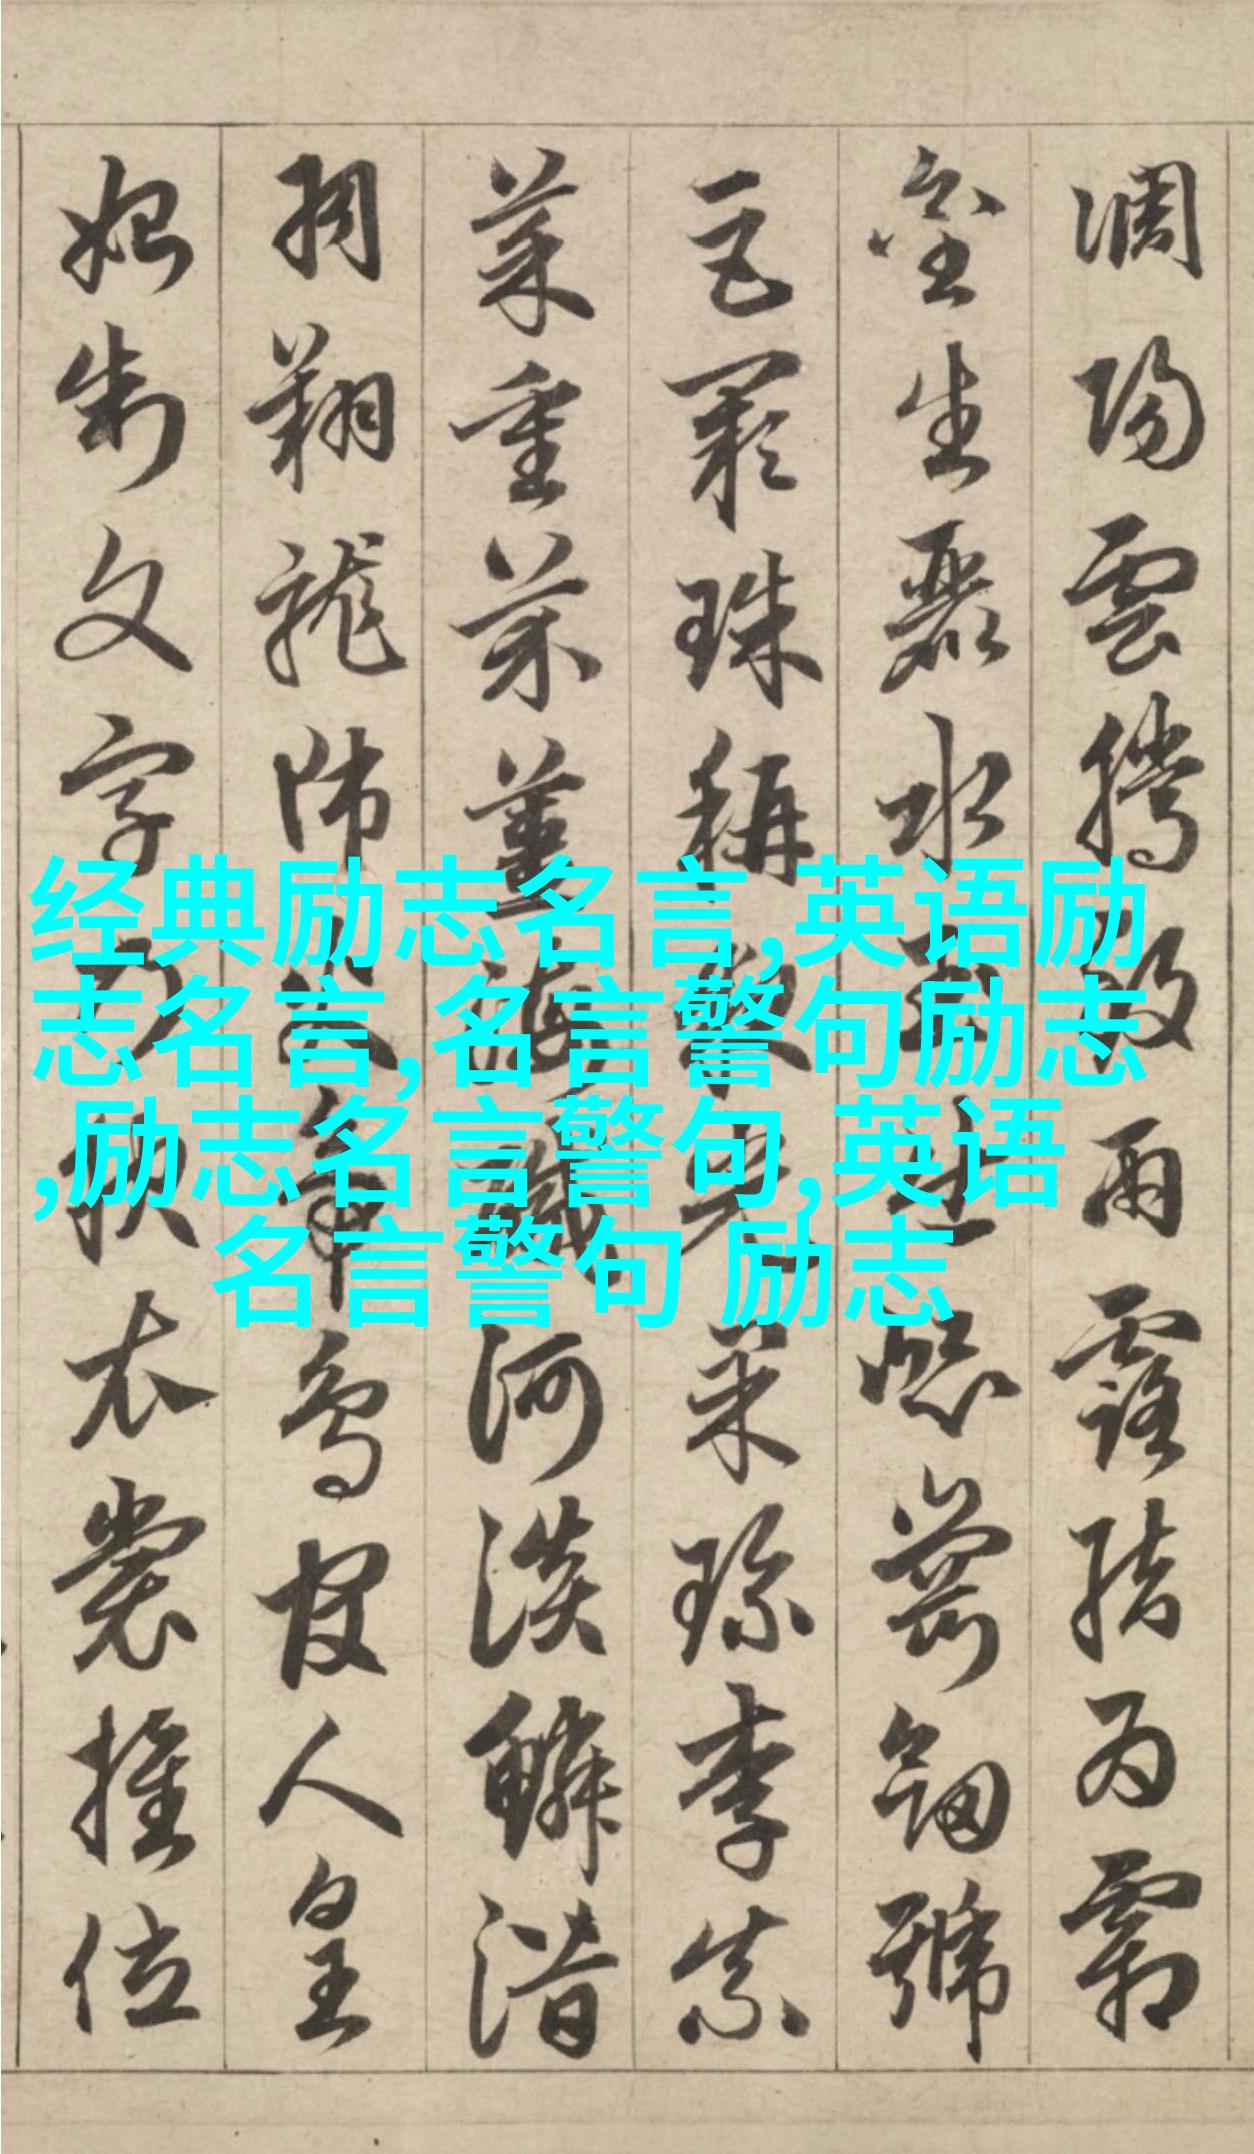 調陽雲騰致雨露結為霜
金生麗水玉出崑崗劍號
巨闕珠稱夜光菓珍李柰
菜重芥薑海鹹河淡鱗潛
羽翔龍師火帝鳥官人皇
始制文字乃服衣裳推位
经典励志名言,英语励
志名言,名言警句励志
,励志名言警句,英语
名言警句 励志